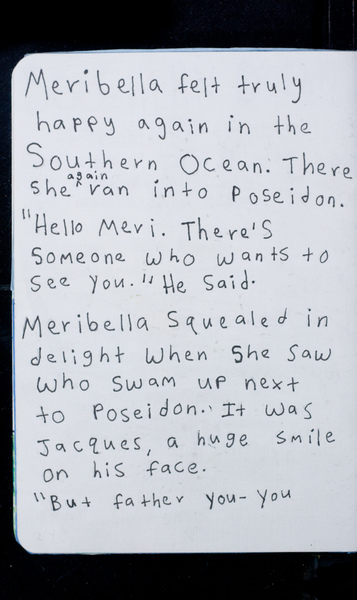 Meribella felt truly
happy again in the
Southern Ocean. There
she again ran into Poseidon.
"Hello Meri. There's
someone who wants to
see you." He said.
Meribella squealed in
delight when she saw
who swam up next
to Poseidon. It was
Jacques, a huge smile
on his face.
"But father you- you